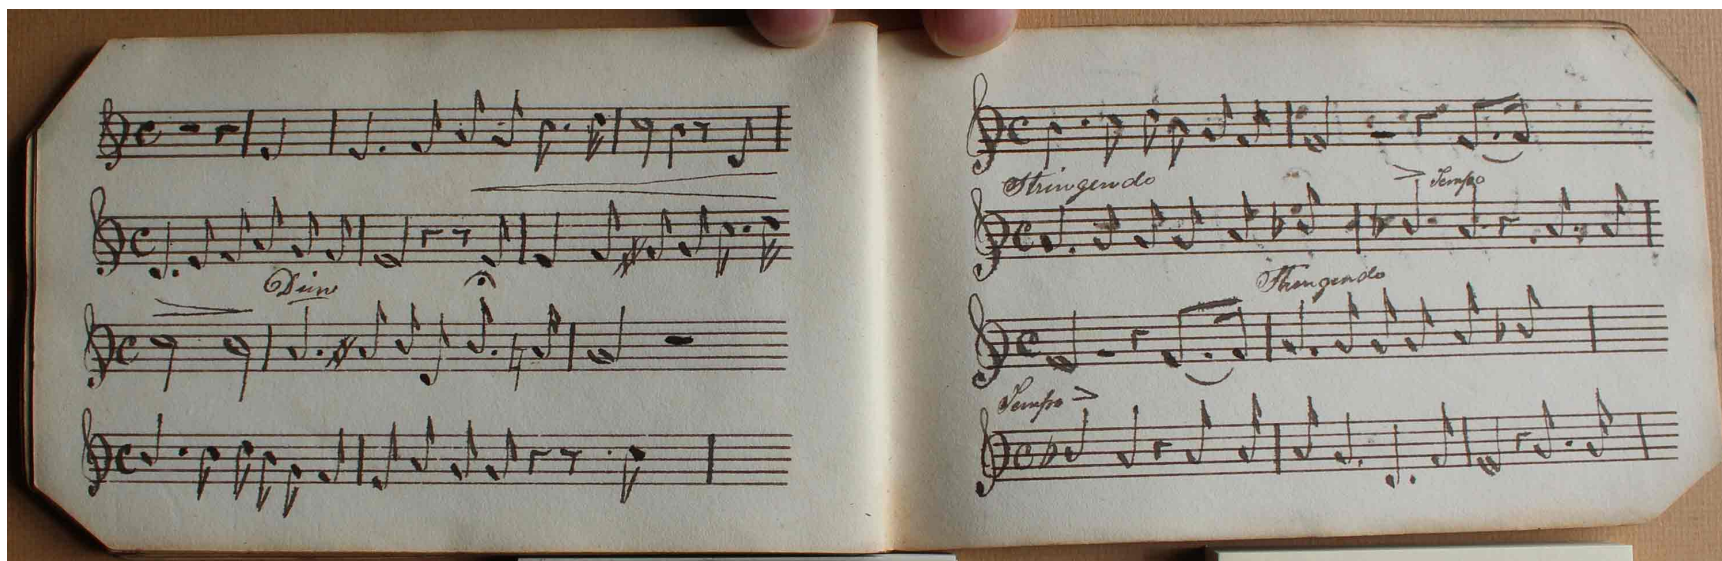 Dim
Stringendo
Tempo
Stringendo
Tempo